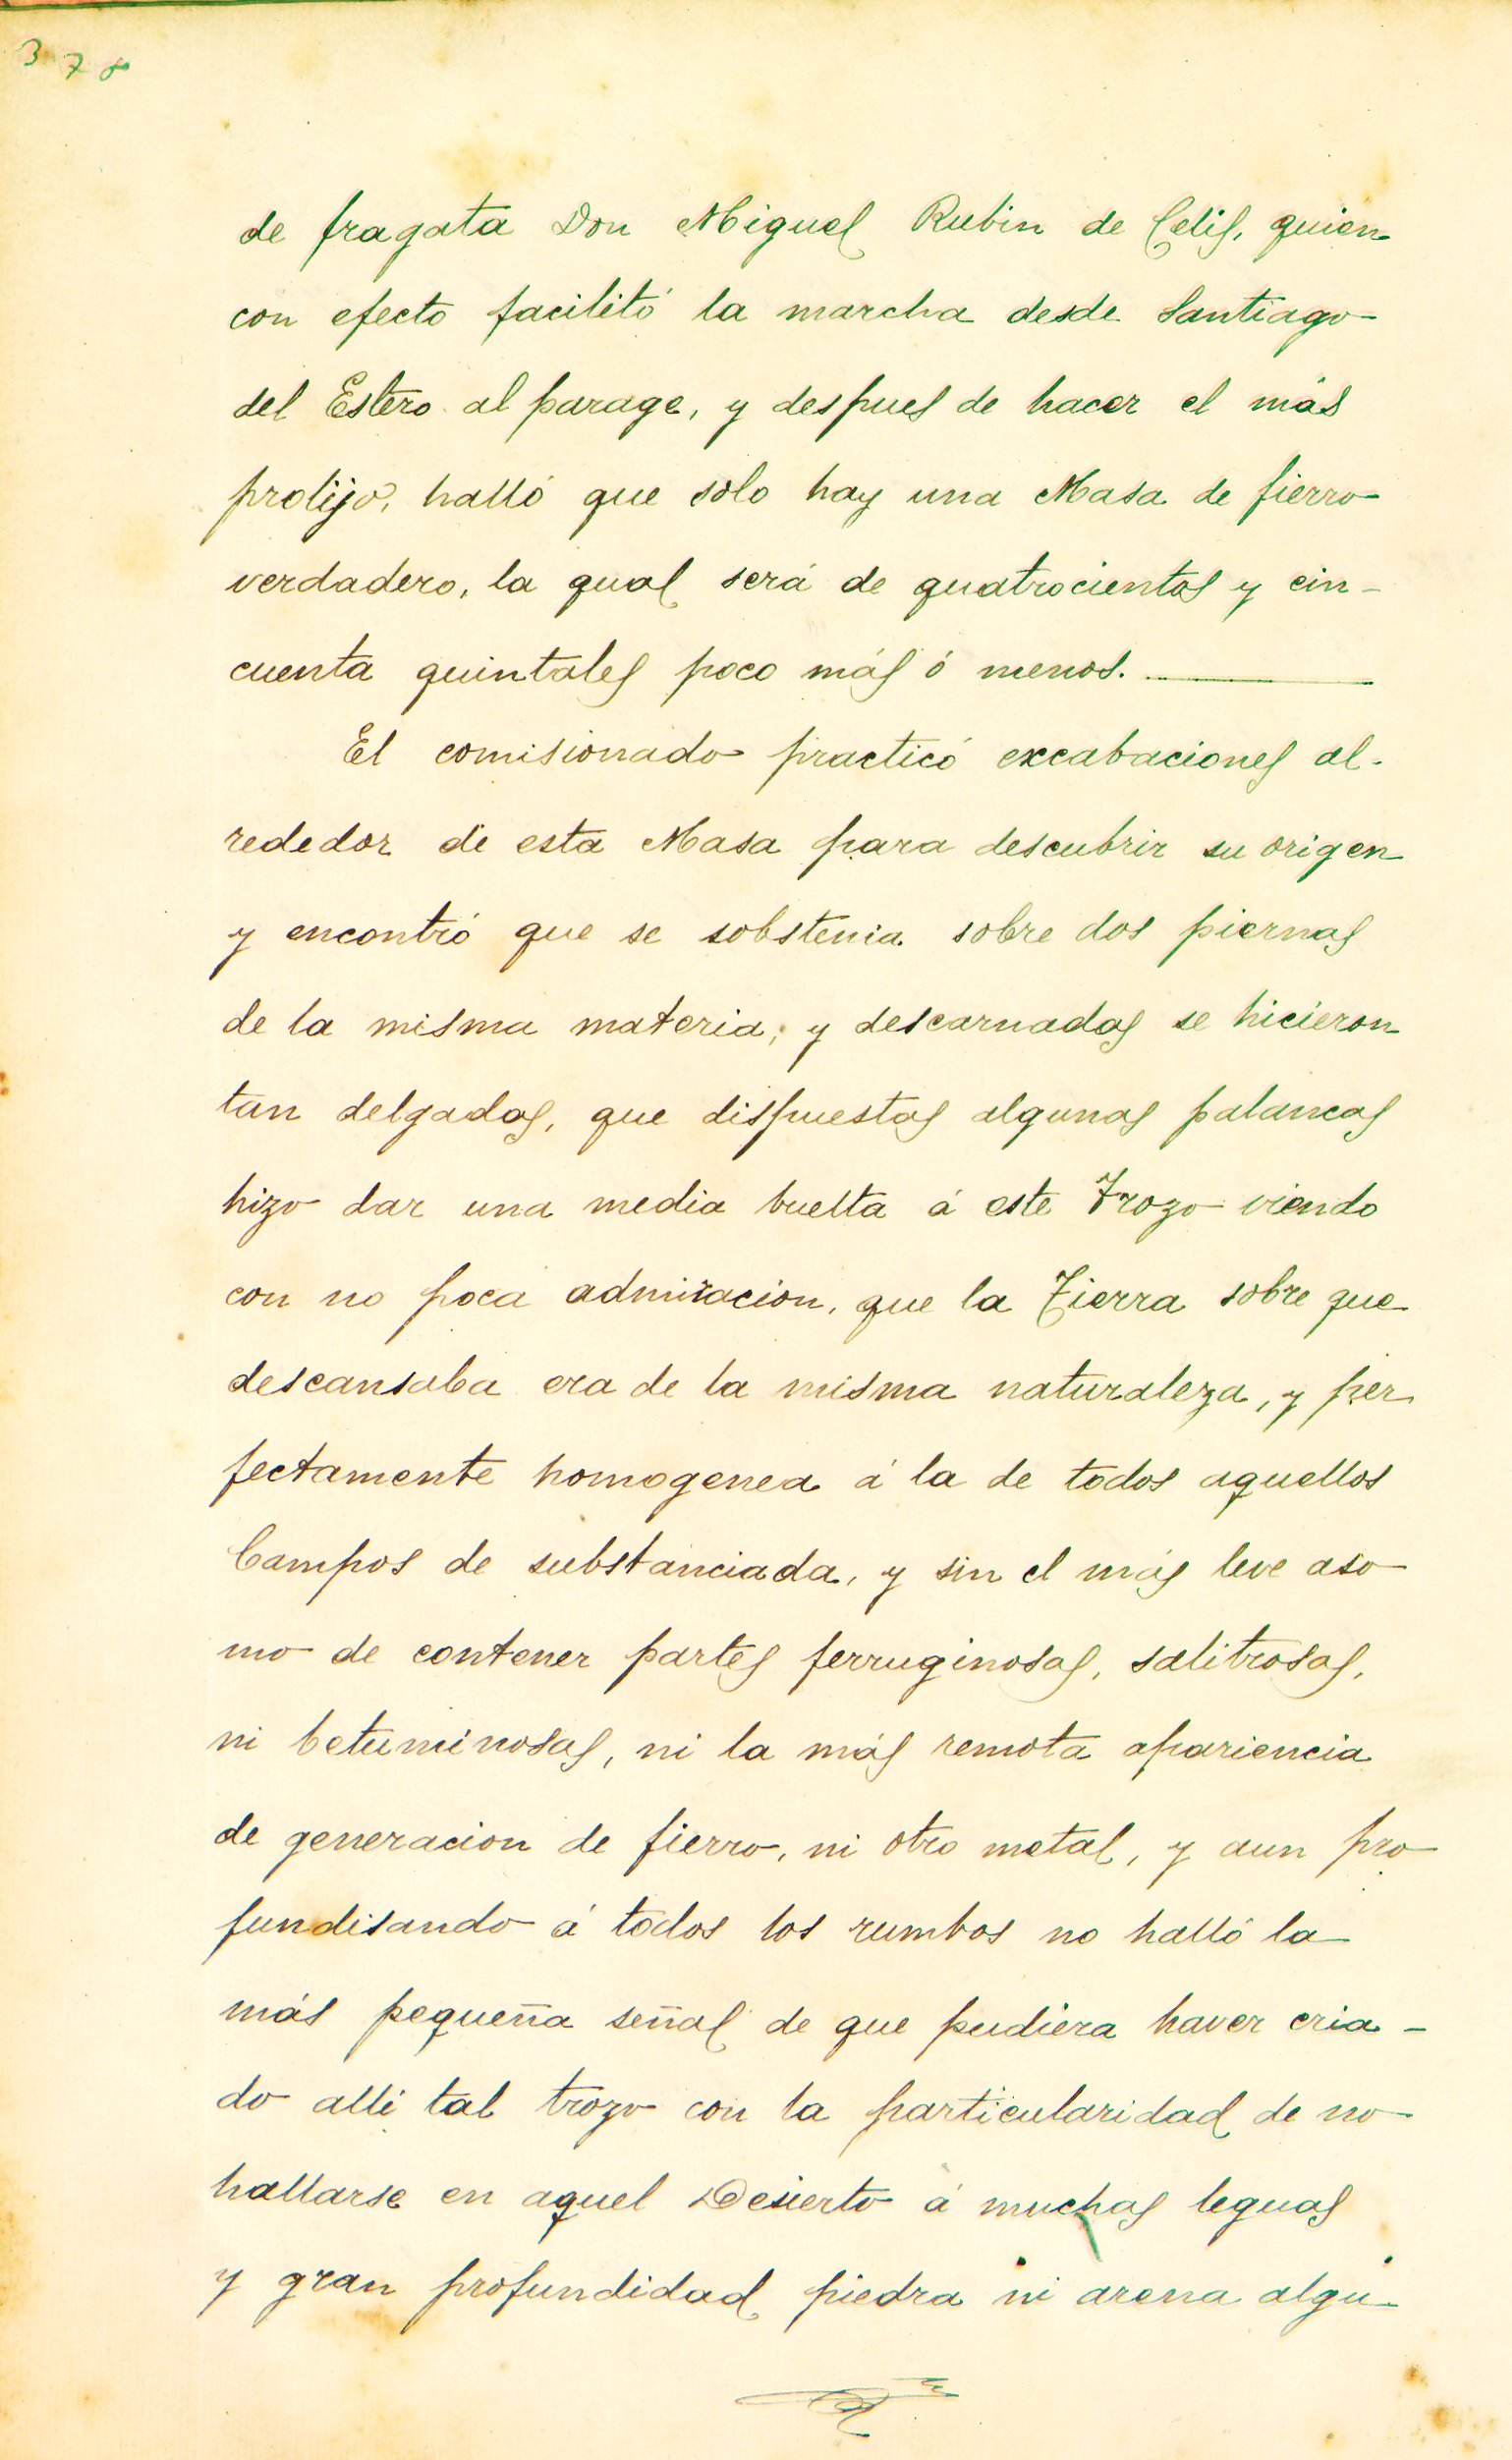 378
de fragata Don Miguel Rubin de Celis, quien
con efecto facilitó la marcha desde Santiago
del Estero al parage, y despues de hacer el más
prolijo, halló que solo hay una Masa de fierro
verdadero, la qual será de quatrocientos y cin-
cuenta quintales poco más ó menos.
El comisionado practicó excabaciones al-
rededor de esta Masa para descubrir su origen
y encontró que se sobstenia sobre dos piernas
de la misma materia, y descarnadas se hicieron
tan delgadas, que dispuestas algunas palancas
hizo dar una media buelta á este Trozo viendo
con no poca admiracion, que la Tierra sobre que
descansaba era de la misma naturaleza, y per
fectamente homogenea á la de todos aquellos
Campos de substanciada, y sin el más leve aso
mo de contener partes ferruginosas, salitrosas,
ni betuminosas, ni la más remota apariencia
de generacion de fierro, ni otro metal, y aun pro
fundisando á todos los rumbos no halló la
más pequeña señal de que pudiera haver cria-
do alli tal trozo con la particularidad de no
hallarse en aquel Desierto á muchas leguas
y gran profundidad piedra ni arena algu-